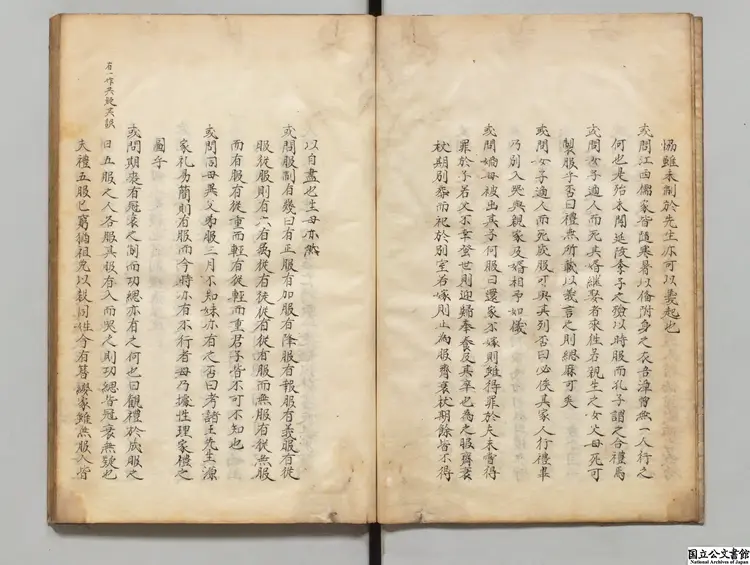 恊雖未制於先生亦可以義起也
或問江西儒家皆隨寒暑以備附身之衣吾漳曾無一人行之
何也是殆未聞延陵季子之殮以時服而孔子謂之合禮焉
或問女子適人而死其婿繼娶者來徃若親生之女父母死可
製服乎否曰禮無所載以義言之則緦麻可矣
或問女子適人而死成服可與其列否曰必俟其家人行禮畢
乃別入哭與親家及婚相弔如儀
或問嫡母被出其子何服曰還家不嫁則雖得罪於夫未嘗得
罪於子若父不幸登世則迎歸奉養及其卒也為之服齊衰
杖期別葬而祀於別室若嫁則止為服齊衰杖期餘皆不得
以自盡也生母亦然
或問服制有幾曰有正服有加服有降服有報服有義服有從
服從服則有六有為從有徒從有從有服而無服有從無服
而有服有從重而輕有從輕而重君子皆不可不知也
或問同母異父為服三月不知妹亦有之否曰考諸王先生源
家礼易簡則有服而今時亦有不行者毋乃據性理家禮之
啚乎
或問期喪有冠衰之制而功緦亦有之何也曰觀禮於成服之
日五服之人各服其服有入而哭之則功緦皆冠衰無疑也
夫禮五服已窮猶祖免以殺同性今有簪纓家雖無服入皆
右一作共疑共誤
国立公文書館
National Archives of Japan